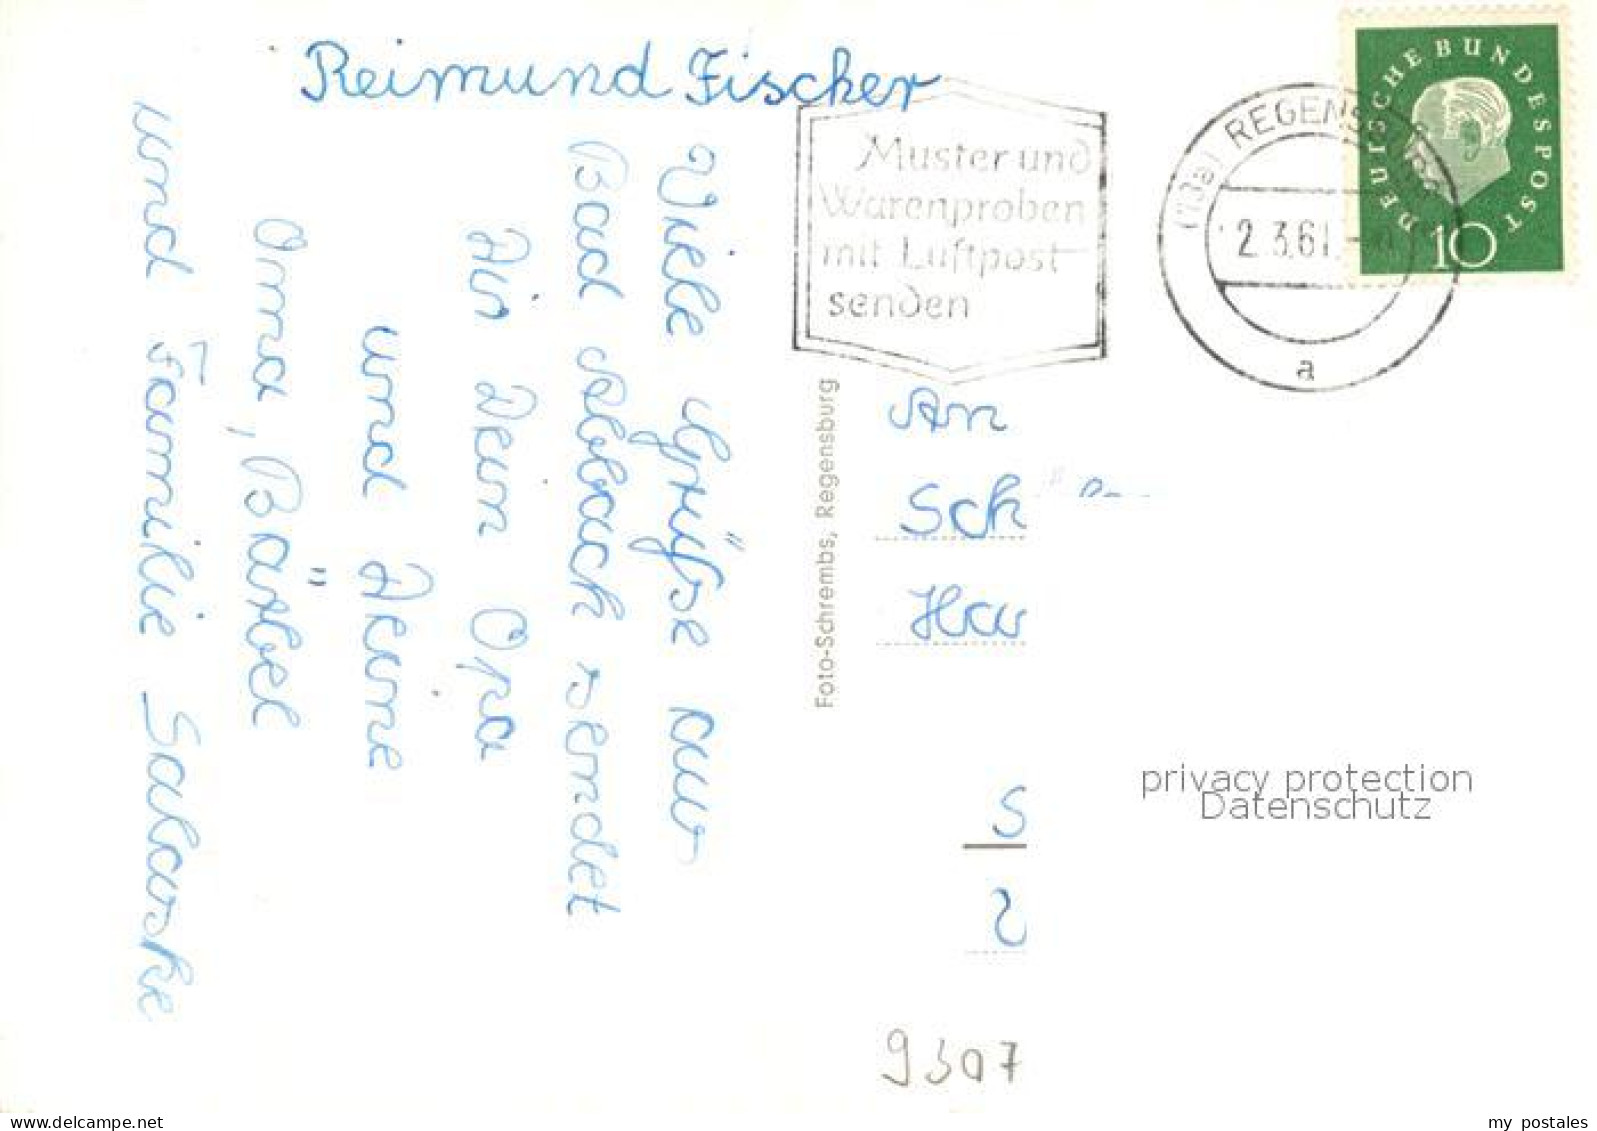 Reimund Fischer
Viele Grüße aus
Bad Abbach sendet
Dir Dein Opa
und Deine
Oma, Bärbel
und Familie Salaske
Foto-Schrembs, Regensburg
Muster und
Warenproben
mit Luftpost
senden
(13a) REGENSBURG
2.3.61
a
DEUTSCHE BUNDESPOST
10
An
Sch
Hau
S
2
9307
privacy protection
Datenschutz
www.delcampe.net
my postales